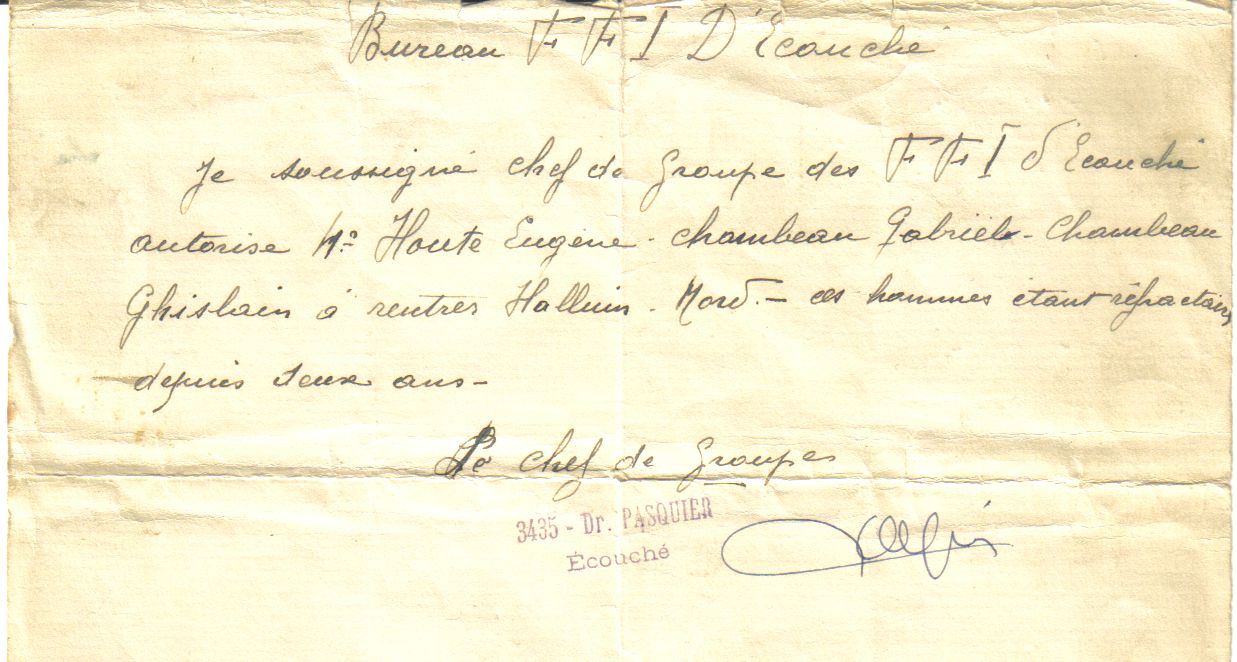 Bureau FFI D'Ecouché
Je soussigné chef de Groupe des FFI d'Ecouché
autorise Mr Houte Eugène - Chambeau Gabriel - Chambeau
Ghislain à rentrer Halluin. Nord. - ces hommes étant réfractaires
depuis deux ans -
Le chef de Groupes
3435 - Dr. PASQUIER
Écouché